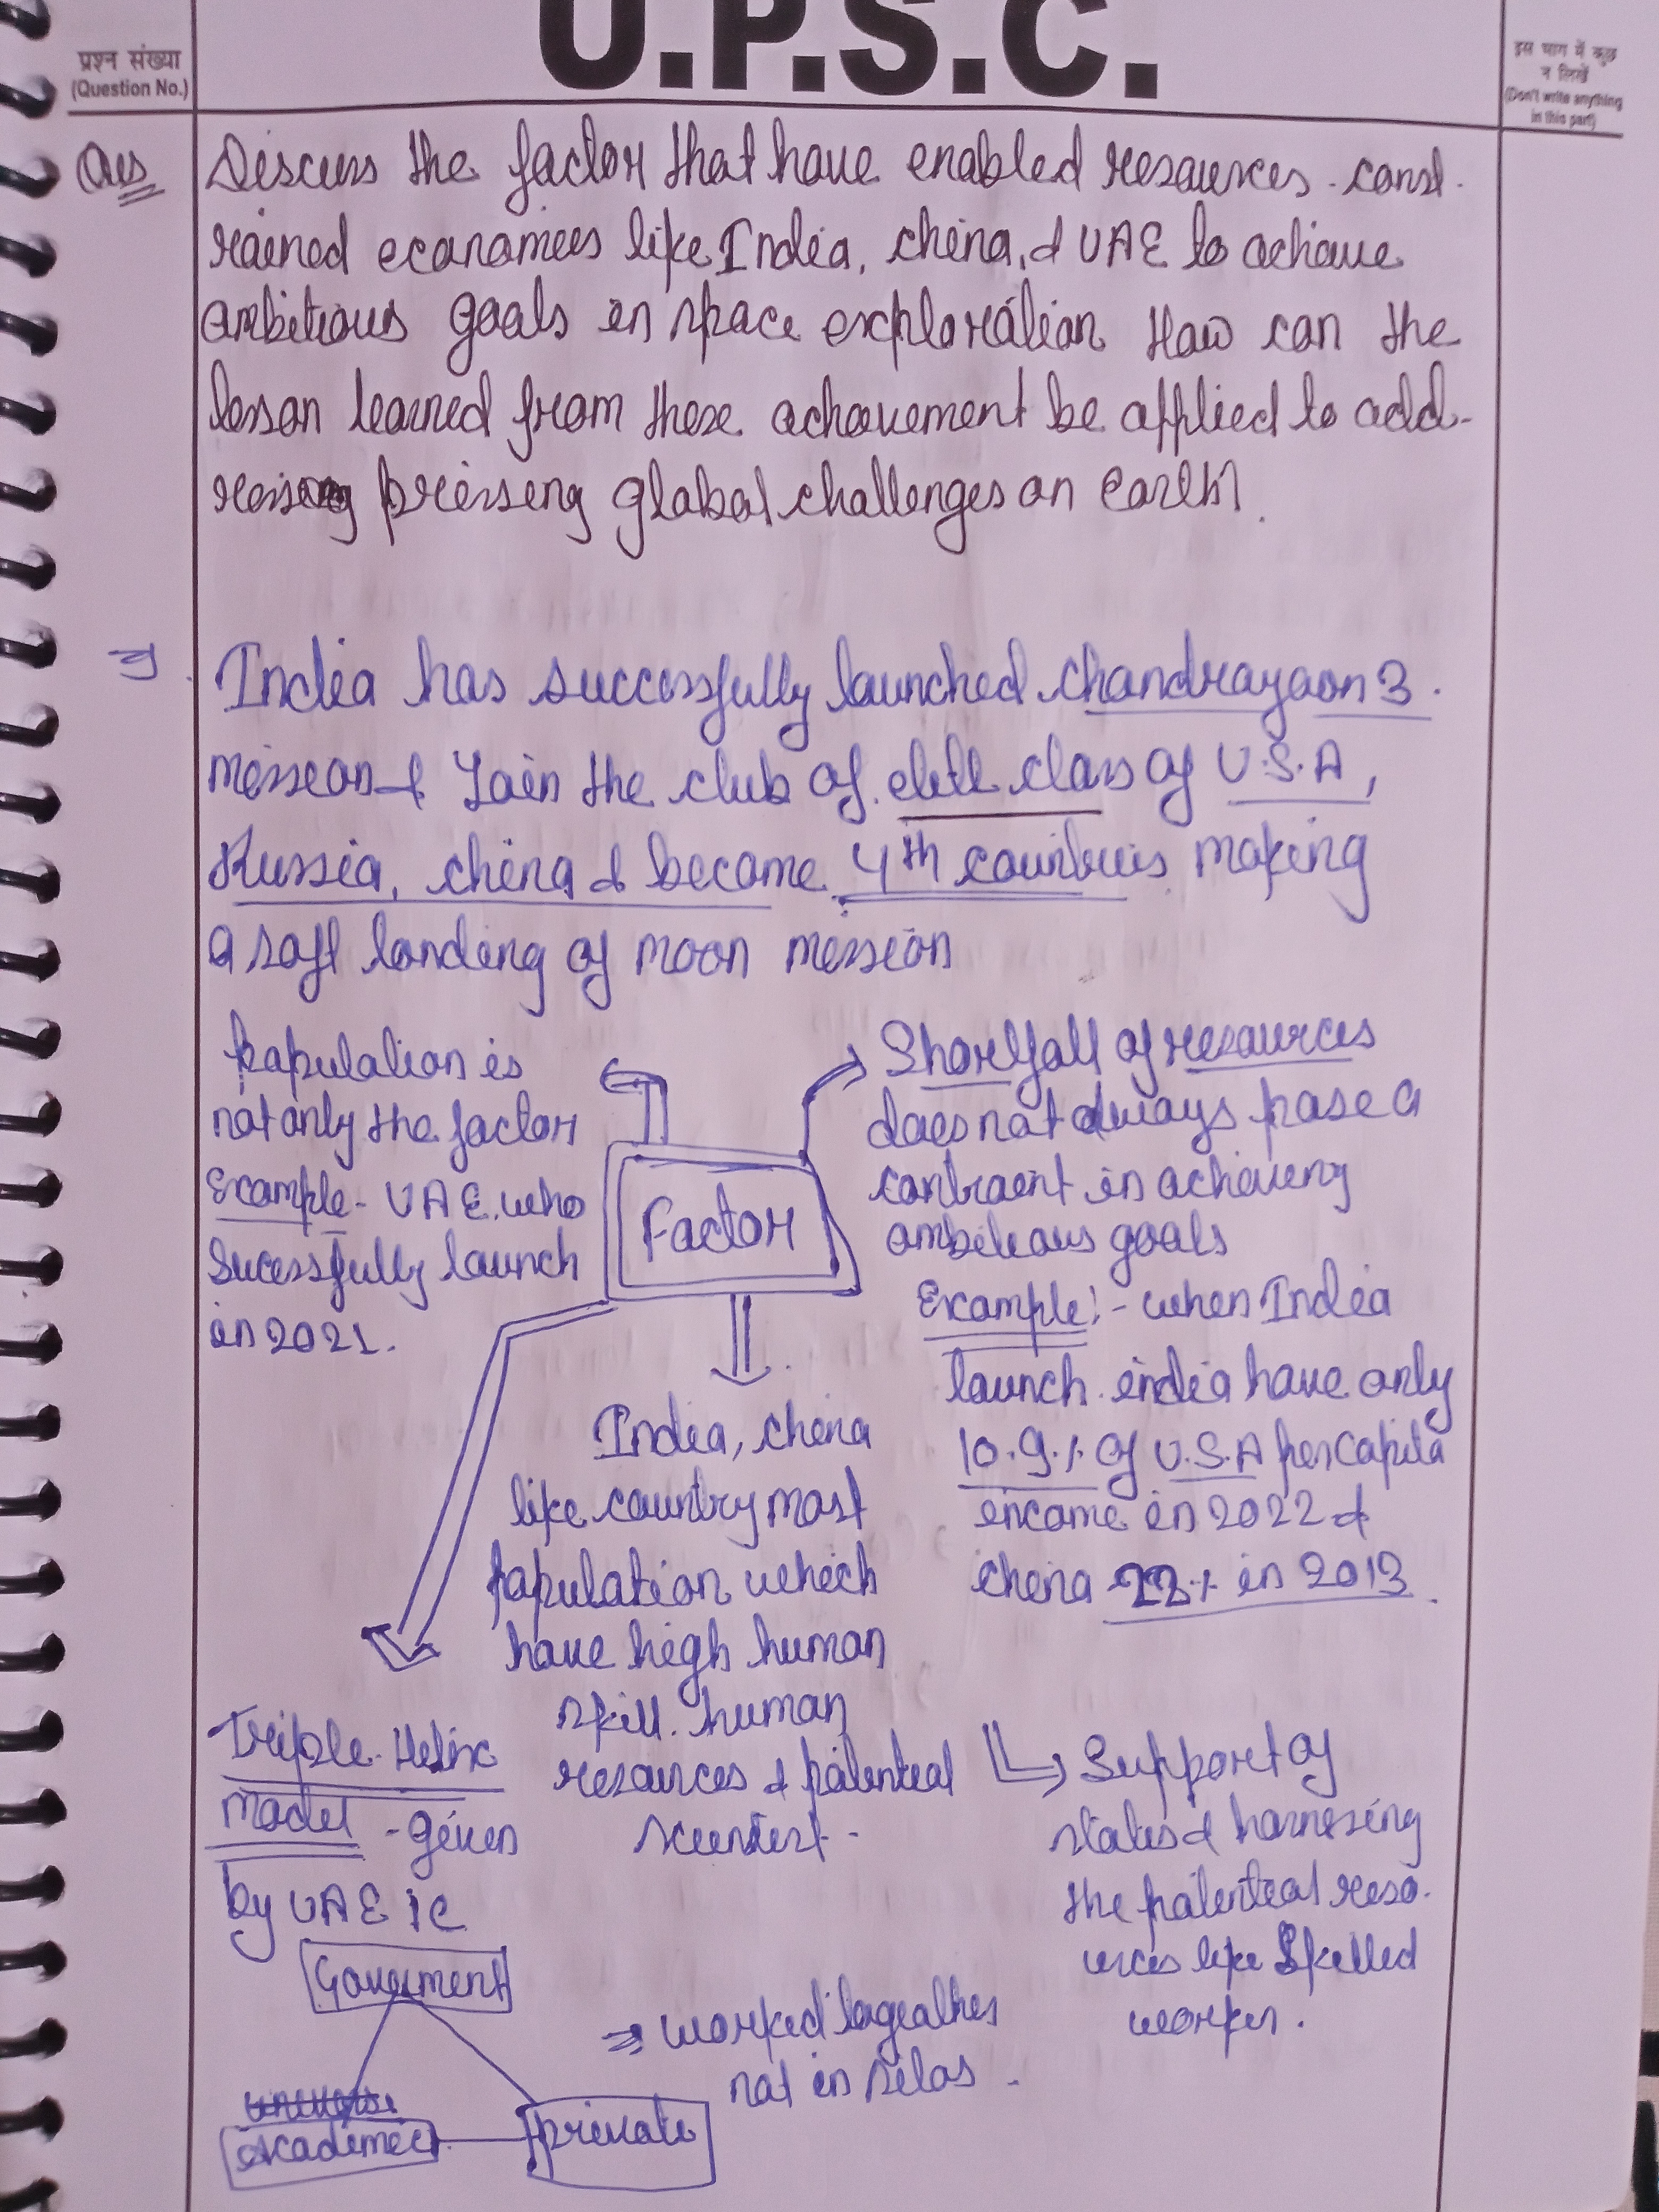 U.P.S.C.
प्रश्न संख्या
(Question No.)
इस भाग में कुछ
न लिखें
(Don't write anything
in this part)
Ques
Discuss the factor that have enabled resources - const-
rained economies like India, china, & UAE to achieve
ambitious goals in space exploration How can the
lesson learned from these achievement be applied to add-
ressing pressing global challenges on Earth?
India has successfully launched chandrayaan 3
mission & Join the club of elite class of U.S.A,
Russia, china & became 4th countries making
a soft landing of moon mission
Population is
not only the factor
Example - UAE, who
Sucessfully launch
in 2021.
Factor
Shortfall of resources
does not always pose a
contraint in achieving
ambitious goals
Example:- when India
launch india have only
10.9% of U.S.A per capita
income in 2022 &
china 22% in 2013.
India, china
like country most
population which
have high human
skill. human
resources & potential
scientist.
Support of
states & harnesing
the potential reso-
urces like Skilled
worker.
Triple Helix
Model - given
by UAE ie
Goverment
Academic
private
⇒ worked togeather
not in silos.